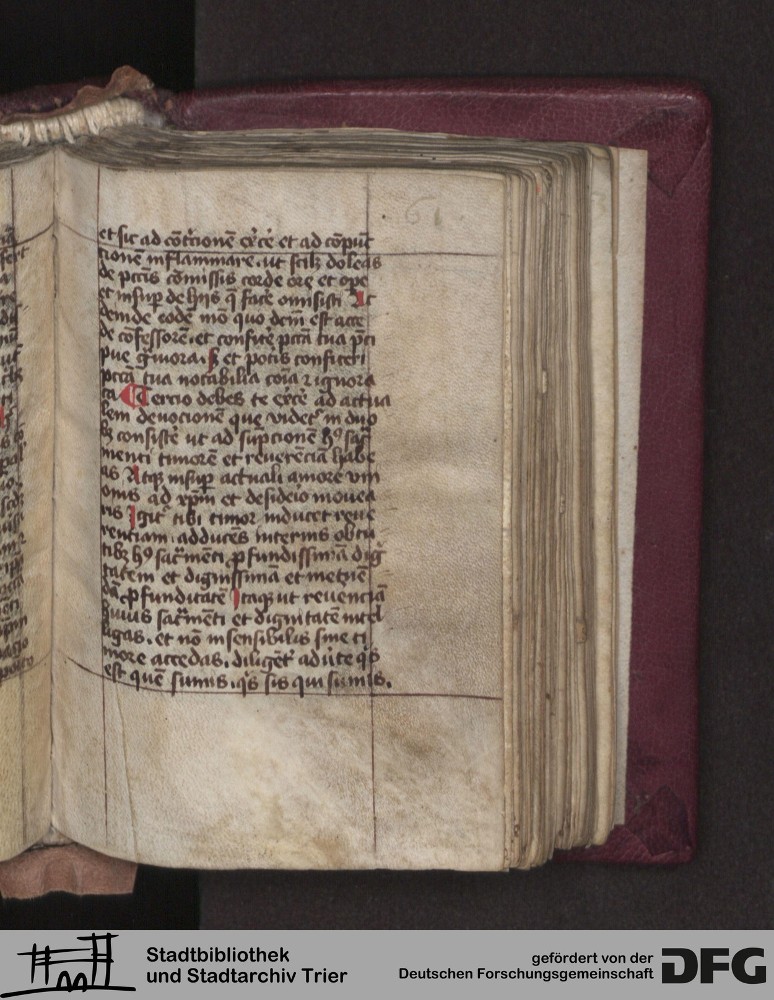 61.
et sic ad cōt͛cionē ex͛cē et ad cōpūc
tionē inflammare . ut scilꝫ doleas
de pctīs cōmissis corde ore et ope
et insuꝑ de hijs q̄ face͛ omisisti At
deinde eodē mō quo dcm̄ est acce
de cōfessorē . et confite͛ pctā tua
g͛uiora . et potis confiteri
pctā tua notabilia cōia ⁊ ignora
ta Tercio debes te ex͛ce͛ ad actua
lem devocionē que videt͛ in duo
bꝫ consiste͛ ut ad sūpcionē hꝰ sac͛
menti timorē et reverēciā habe
as Atqꝫ insuꝑ actuali amore vni
onis ad xp̄m et desideio movea
ris Igit͛ tibi timor inducet reve
rentiam . adducēs interius obtu
tibꝫ hꝰ sac͛mēti ꝓfundissimā dig
tatem et dignissimā et metuē
dā ꝓfunditatē Itaqꝫ ut reverēciā
huius sac͛mēti et dignitatē intel
ligas . et nō insensibilis sine ti
more accedas . diligēt͛ adv͛te qͥs
est quē sumis . qͥs sis qui sumis .
Stadtbibliothek
und Stadtarchiv Trier
gefördert von der
Deutschen Forschungsgemeinschaft
DFG